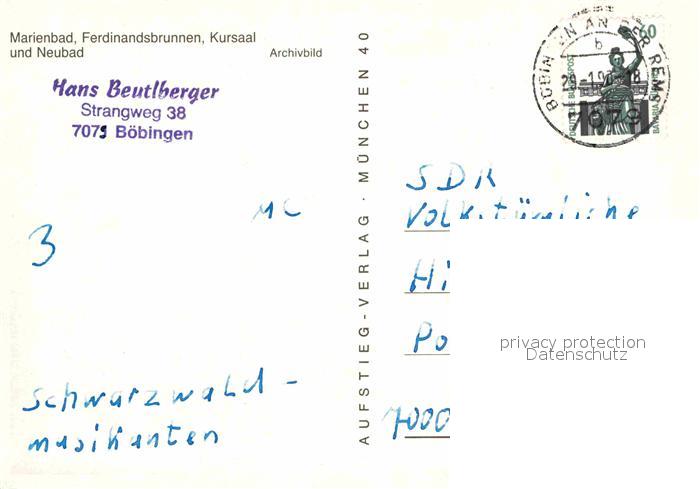 Marienbad, Ferdinandsbrunnen, Kursaal
und Neubad
Archivbild
Hans Beutlberger
Strangweg 38
7079 Böbingen
MC
3
Schwarzwald-
musikanten
AUFSTIEG-VERLAG · MÜNCHEN 40
60
DEUTSCHE BUNDESPOST
BÖBINGEN AN DER REMS
b
7079
SDR
Volkstümliche
Hi
Po
7000
privacy protection
Datenschutz